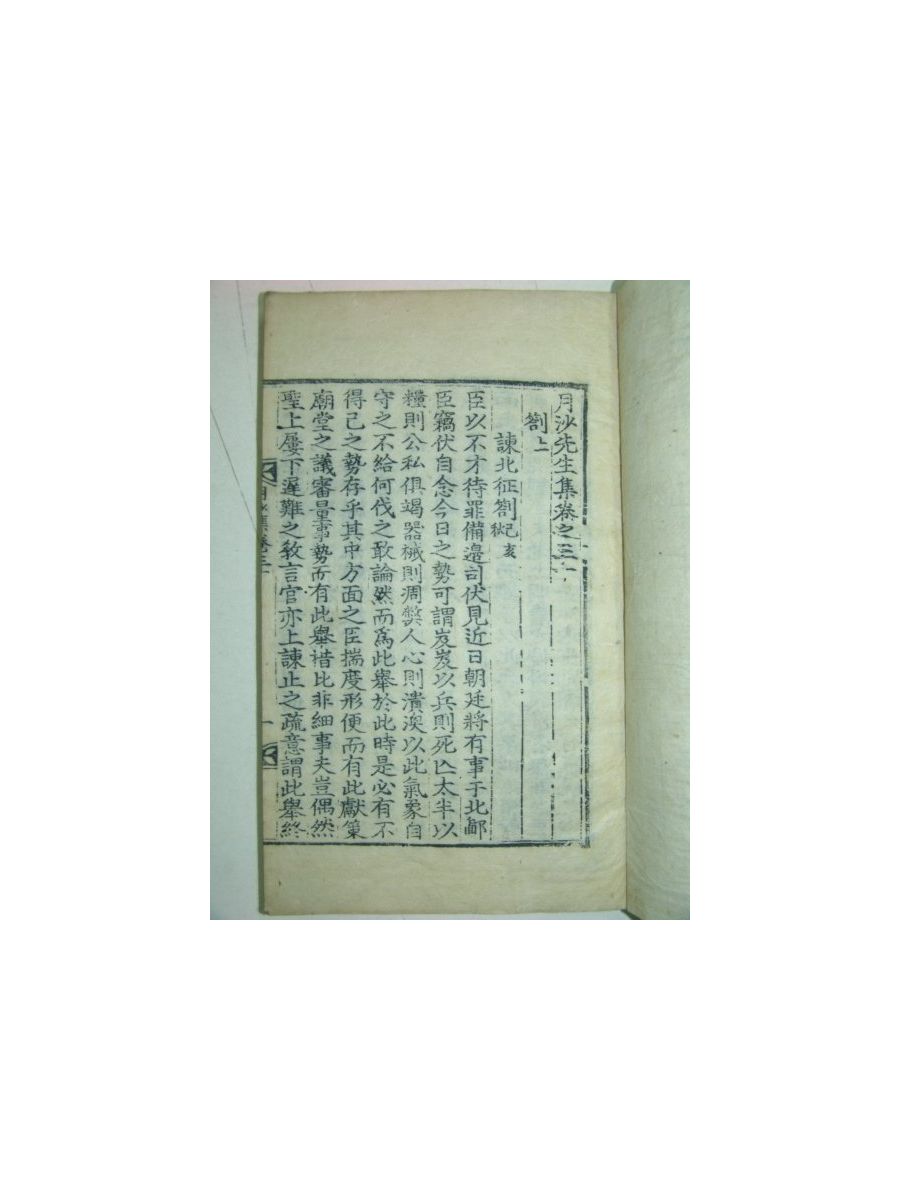 月沙先生集卷之三十
劄上
諫北征劄 己亥
臣以不才待罪備邊司伏見近日朝廷將有事于北鄙
臣竊伏自念今日之勢可謂岌岌以兵則死亡太半以
糧則公私俱竭器械則凋弊人心則潰渙以此氣象自
守之不給何伐之敢論然而爲此擧於此時是必有不
得已之勢存乎其中方面之臣揣度形便而有此獻策
廟堂之議審量事勢而有此擧措比非細事夫豈偶然
聖上屢下遅難之敎言官亦上諫止之疏意謂此擧終
月沙集卷三十
一